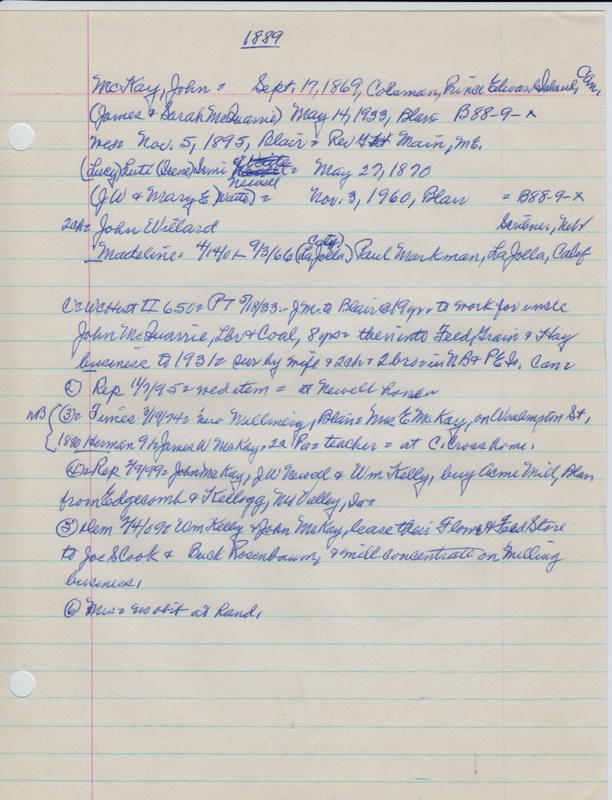 1889
McKay, John = Sept. 17, 1869, Coleman, Prince Edward Island, Can.
(James & Sarah McQuarrie) May 14, 1933, Blair B88-9-x
wed= Nov. 5, 1895, Blair = Rev Main, M.E.
(Lucy) (Irene) Newell = May 27, 1870
(J W & Mary E) (Waite) = Nov. 3, 1960, Blair = B88-9-x
2ch= John Willard Scribner, Nebr
Madeline = 4/14/01 - 9/3/66 (LaJolla, Calif) Paul Markman, LaJolla, Calif
II 650= PT 5/18/33 - J.M. to Blair @ 19 yr. to work for uncle
John McQuarrie, Lbr & Coal, 8 yrs = then into Feed, Grain & Hay
business to 1931 = sur by wife & 2ch + 2 bro = in NB & P.E.Is. Can =
① Rep 11/7/95 = wed item = at Newell home
NB ③ = Times 3/19/74 = new Millinery, Blair = Mrs E McKay, on Washington St,
1880 Herman 9 = James W McKay = 22 Pa = teacher = at C. Cross home.
④ = Rep 3/9/99 = John McKay, J W Newell & Wm Kelly, buy Acme Mill, Blair
from Edgecomb & Kellogg, Mo Valley, Ia =
⑤ Dem 3/4/09 = Wm Kelly & John McKay, lease their Flour & Feed Store
to Joe S Cook & Buck Rosenbaum, & mill concentrate on milling
business,
⑥ Mrs = obit at Rand,